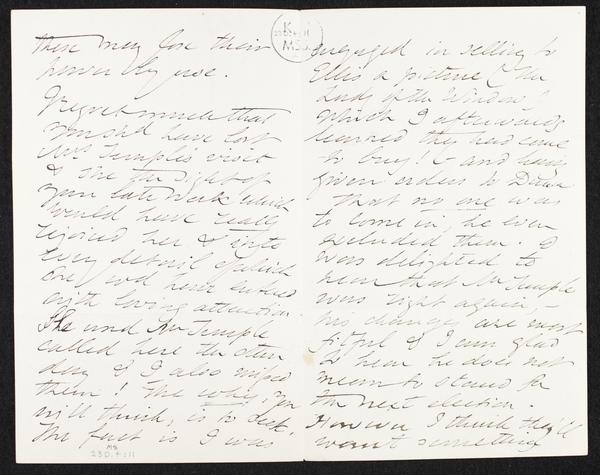 these may lose their
power by use.
I regret much that
you shd have lost
Mrs Temple's visit
& she the sight of
your late work which
would have really
rejoiced her & into
every detail of which
she wd have entered
with loving attention.
She and Mr Temple
called here the other
day & I also missed
them! The why, you
will think, is to seek.
The fact is I was
MS
23D.4:11
K
23D.4:11
MSL
engaged in selling to
Ellis a picture (the
Lady of the Window)
which I afterwards
learned they had come
to buy! – and having
given orders to Dunn
that no one was
to come in, he even
excluded them. I
was delighted to
hear that Mr Temple
was right again, –
his changes are most
fitful & I am glad
to hear he does not
mean to stand for
the next election.
However I think they'll
want something